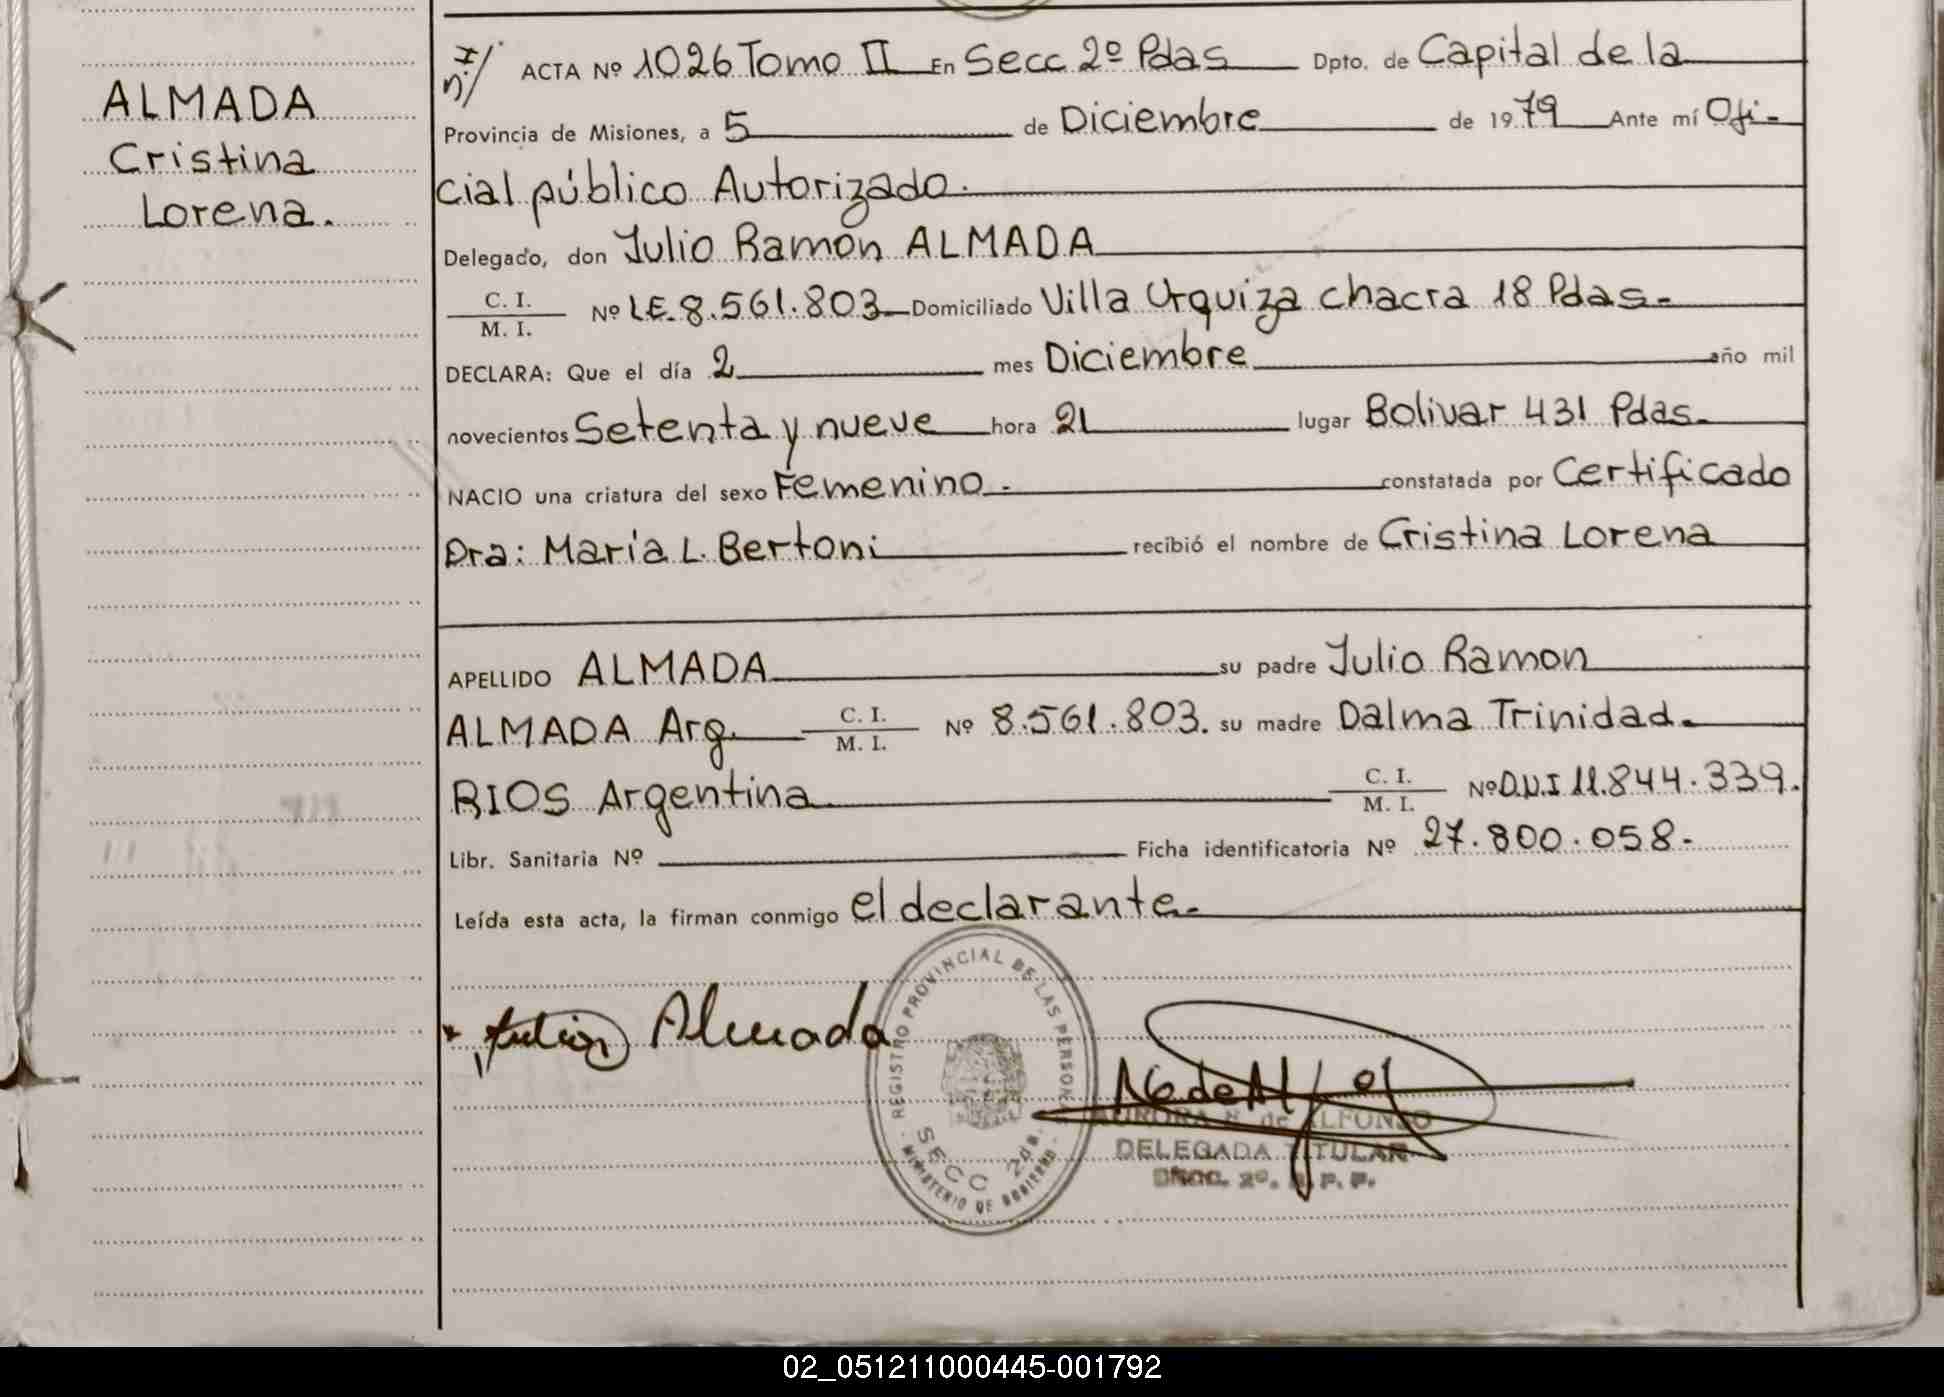 ALMADA
Cristina
Lorena.
n.I/ ACTA Nº 1026 Tomo II En Secc 2º Pdas Dpto. de Capital de la
Provincia de Misiones, a 5 de Diciembre de 1979 Ante mí Ofi-
cial público Autorizado.
Delegado, don Julio Ramón ALMADA
C. I.
M. I.
Nº L.E. 8.561.803 Domiciliado Villa Urquiza chacra 18 Pdas.
DECLARA: Que el día 2 mes Diciembre año mil
novecientos Setenta y nueve hora 21 lugar Bolivar 431 Pdas.
NACIO una criatura del sexo Femenino. constatada por Certificado
Dra: María L. Bertoni recibió el nombre de Cristina Lorena
APELLIDO ALMADA su padre Julio Ramon
ALMADA Arg. C. I. M. I. Nº 8.561.803. su madre Dalma Trinidad.
RIOS Argentina C. I. M. I. Nº D.N.I 11.844.339.
Libr. Sanitaria Nº Ficha identificatoria Nº 27.800.058.-
Leída esta acta, la firman conmigo el declarante.
Julio Almada
REGISTRO PROVINCIAL DE LAS PERSONAS
SECC 2da.
MINISTERIO DE GOBIERNO
AURORA de ALFONSO
DELEGADA TITULAR
SECC. 2º. R.P.P.
02_051211000445-001792